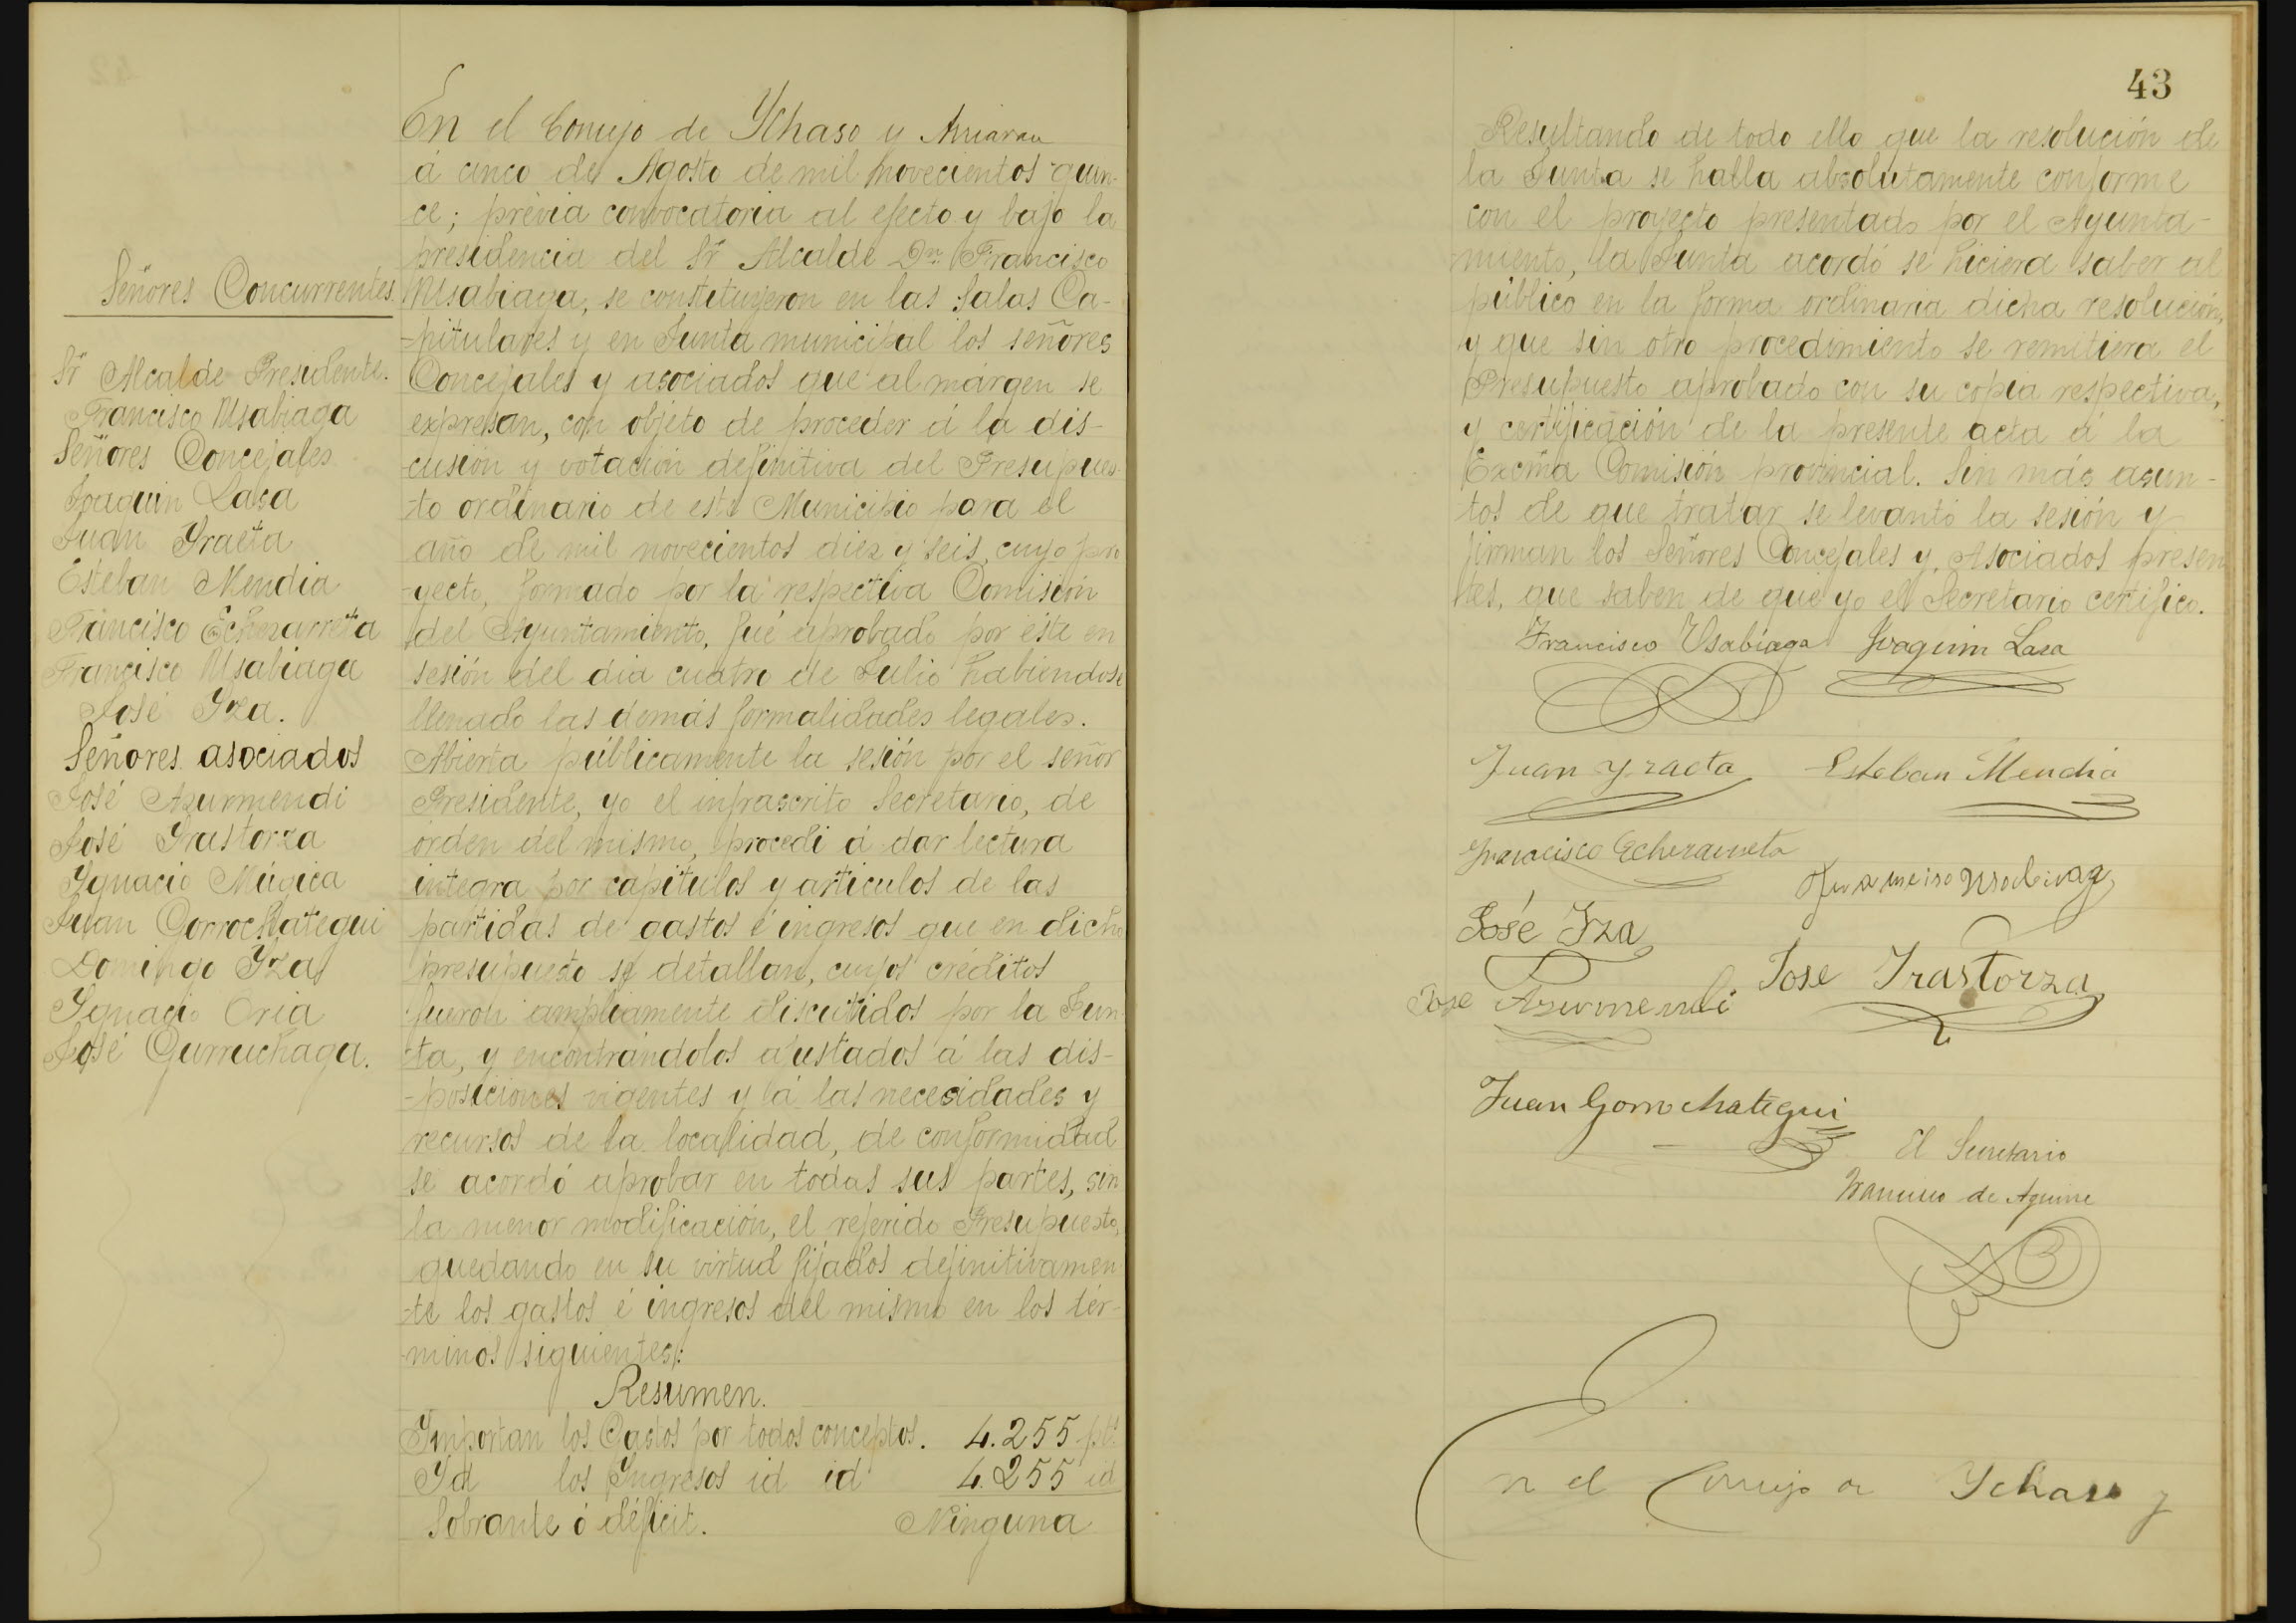 En el Concejo de Ychaso y Arriaran
á cinco de Agosto de mil novecientos quin-
ce; previa convocatoria al efecto y bajo la
presidencia del Sr Alcalde Dn Francisco
Usabiaga, se constituyeron en las Salas Ca-
-pitulares y en Junta municipal los señores
Concejales y asociados que al márgen se
expresan, con objeto de proceder á la dis-
-cusión y votación definitiva del Presupues-
-to ordinario de este Municipio para el
año de mil novecientos diez y seis, cuyo pro
-yecto, formado por la respectiva Comisión
del Ayuntamiento, fué aprobado por éste en
sesión del dia cuatro de Julio habiendose
llenado las demás formalidades legales.
Abierta públicamente la sesión por el señor
Presidente, yo el infrascrito Secretario, de
órden del mismo, procedi á dar lectura
integra por capitulos y articulos de las
partidas de gastos é ingresos que en dicho
presupuesto se detallan, cuyos créditos
fueron ampliamente discutidos por la Jun
-ta, y encontrándolos ajustados á las dis-
-posiciones vigentes y á las necesidades y
recursos de la localidad, de conformidad
se acordó aprobar en todas sus partes, sin
la menor modificación, el referido Presupuesto,
quedando en su virtud fijados definitivamen
-te los gastos é ingresos del mismo en los tér-
-minos siguientes:
Resumen.
Ymportan los Gastos por todos conceptos. 4.255 pts
Yd los Yngresos id id 4.255 id
Sobrante ó déficit. Ninguna
Señores Concurrentes.
Sr Alcalde Presidente.
Francisco Usabiaga
Señores Concejales
Joaquin Lasa
Juan Yraeta
Esteban Mendia
Francisco Echezarreta
Francisco Usabiaga
José Yza.
Señores asociados
José Azurmendi
José Yrastorza
Ygnacio Múgica
Juan Gorrochategui
Domingo Yza
Ygnacio Oria
José Gurruchaga.
43
Resultando de todo ello que la resolución de
la Junta se halla absolutamente conforme
con el proyecto presentado por el Ayunta-
miento, la Junta acordó se hiciera saber al
público en la forma ordinaria dicha resolución,
y que sin otro procedimiento se remitiera el
Presupuesto aprobado con su copia respectiva,
y certificación de la presente acta á la
Excma Comisión provincial. Sin más asun-
tos de que tratar se levantó la sesión y
firman los Señores Concejales y Asociados presen
tes, que saben de que yo el Secretario certifico.
Francisco Usabiaga Joaquin Lasa
Juan Yraeta Esteban Mendia
Francisco Echezarreta
Francisco Usabiaga
José Yza
Jose Yrastorza
Jose Azurmendi
Juan Gorrochategui
El Secretario
Francisco de Aguirre
En el Concejo de Ychaso y